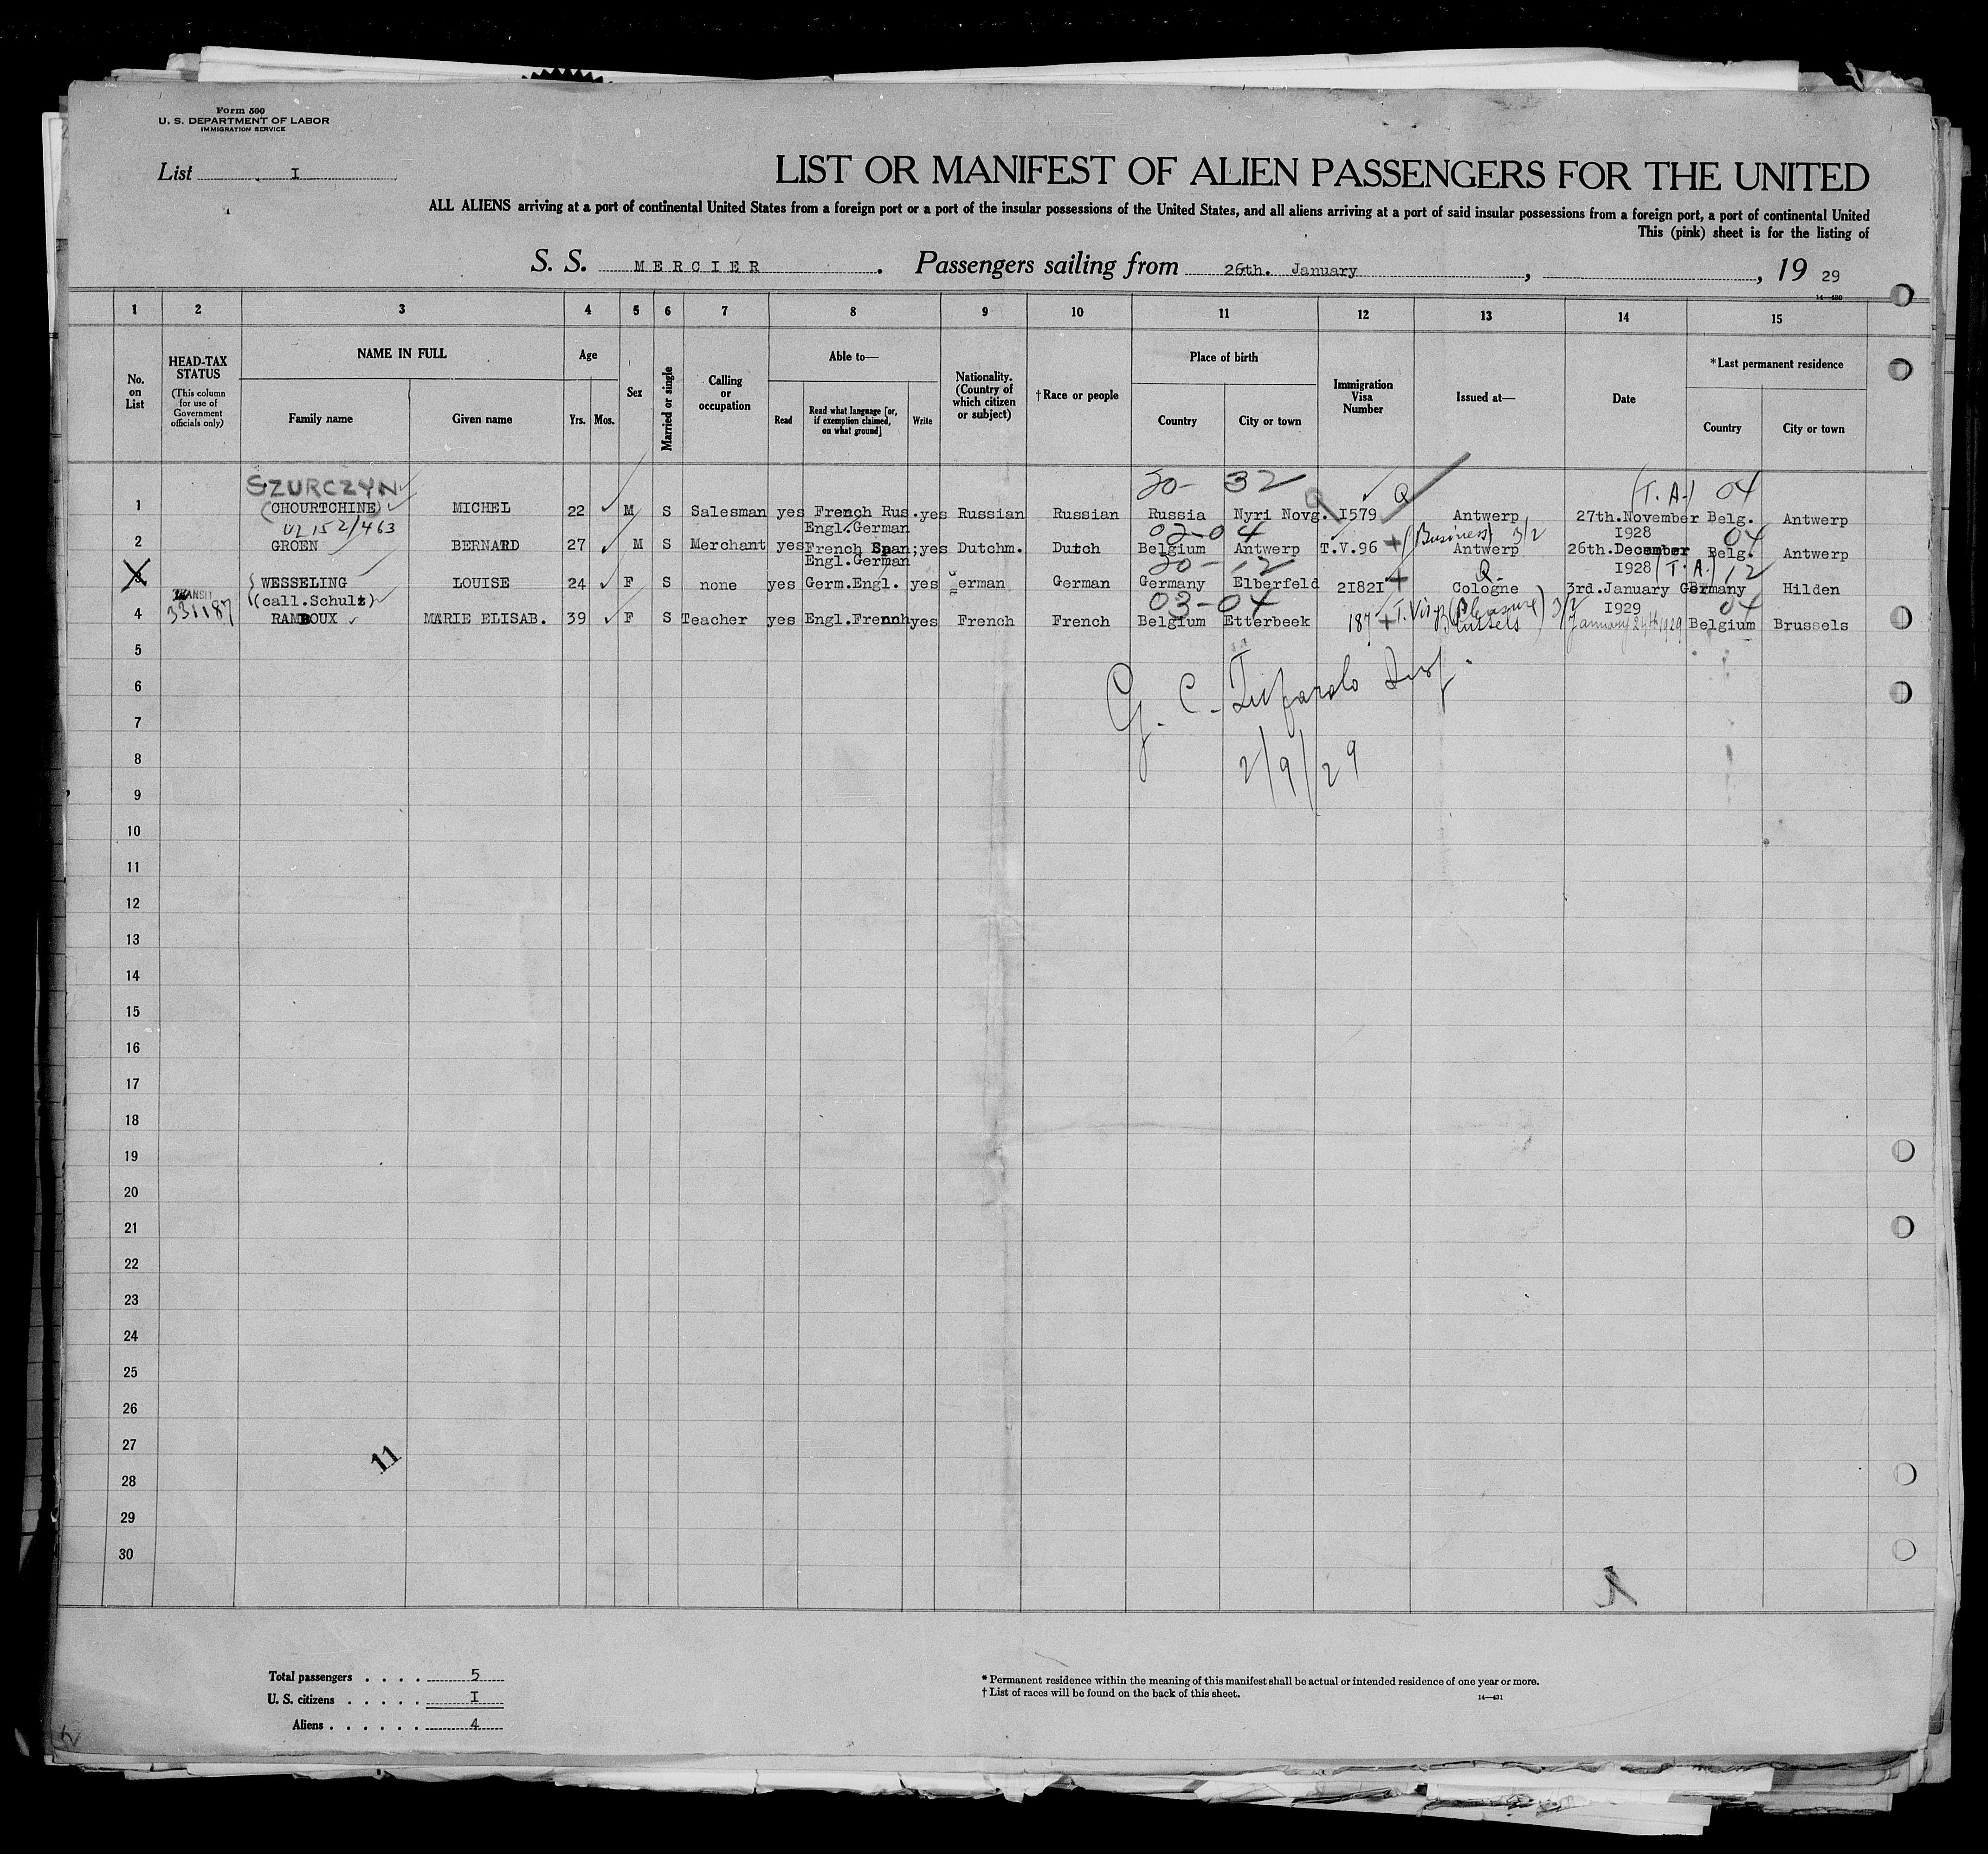 Form 500
U. S. DEPARTMENT OF LABOR
IMMIGRATION SERVICE
List I
LIST OR MANIFEST OF ALIEN PASSENGERS FOR THE UNITED
ALL ALIENS arriving at a port of continental United States from a foreign port or a port of the insular possessions of the United States, and all aliens arriving at a port of said insular possessions from a foreign port, a port of continental United
This (pink) sheet is for the listing of
S. S. MERCIER . Passengers sailing from 26th. January , , 19 29
14—430
1 2 3 4 5 6 7 8 9 10 11 12 13 14 15
No. on List
HEAD-TAX STATUS
(This column for use of Government officials only)
NAME IN FULL
Family name
Given name
Age
Yrs. Mos.
Sex
Married or single
Calling or occupation
Able to—
Read
Read what language [or, if exemption claimed, on what ground]
Write
Nationality. (Country of which citizen or subject)
†Race or people
Place of birth
Country
City or town
Immigration Visa Number
Issued at—
Date
*Last permanent residence
Country
City or town
SZURCZYN 20- 32 Q (T.A.) 04
1 (CHOURTCHINE) MICHEL 22 M S Salesman yes French Rus. yes Russian Russian Russia Nyri Novg. I579 Antwerp 27th.November Belg. Antwerp
VL 152/463 Engl.German 02-04 (Business) 3/2 I928 04
2 GROEN BERNARD 27 M S Merchant yes French Span; yes Dutchm. Dutch Belgium Antwerp T.V.96 Antwerp 26th.December Belg. Antwerp
Engl.German 20-12 Q- I928 (T.A.) 12
3 WESSELING LOUISE 24 F S none yes Germ.Engl. yes German German Germany Elberfeld 2I82I Cologne 3rd.January Germany Hilden
TRANSIT (call.Schulz) 03-04 T.Visa (Pleasure) 3/2 I929 04
4 331187 RAMBOUX MARIE ELISAB. 39 F S Teacher yes Engl.French yes French French Belgium Etterbeek 187 Brussels January 24th 1929 Belgium Brussels
5
6
G. C. Insp.
7
8
2/9/29
9
10
11
12
13
14
15
16
17
18
19
20
21
22
23
24
25
26
27
11
28
29
30
Total passengers . . . . 5
U. S. citizens . . . . . I
Aliens . . . . . . 4
* Permanent residence within the meaning of this manifest shall be actual or intended residence of one year or more.
† List of races will be found on the back of this sheet.
14—431